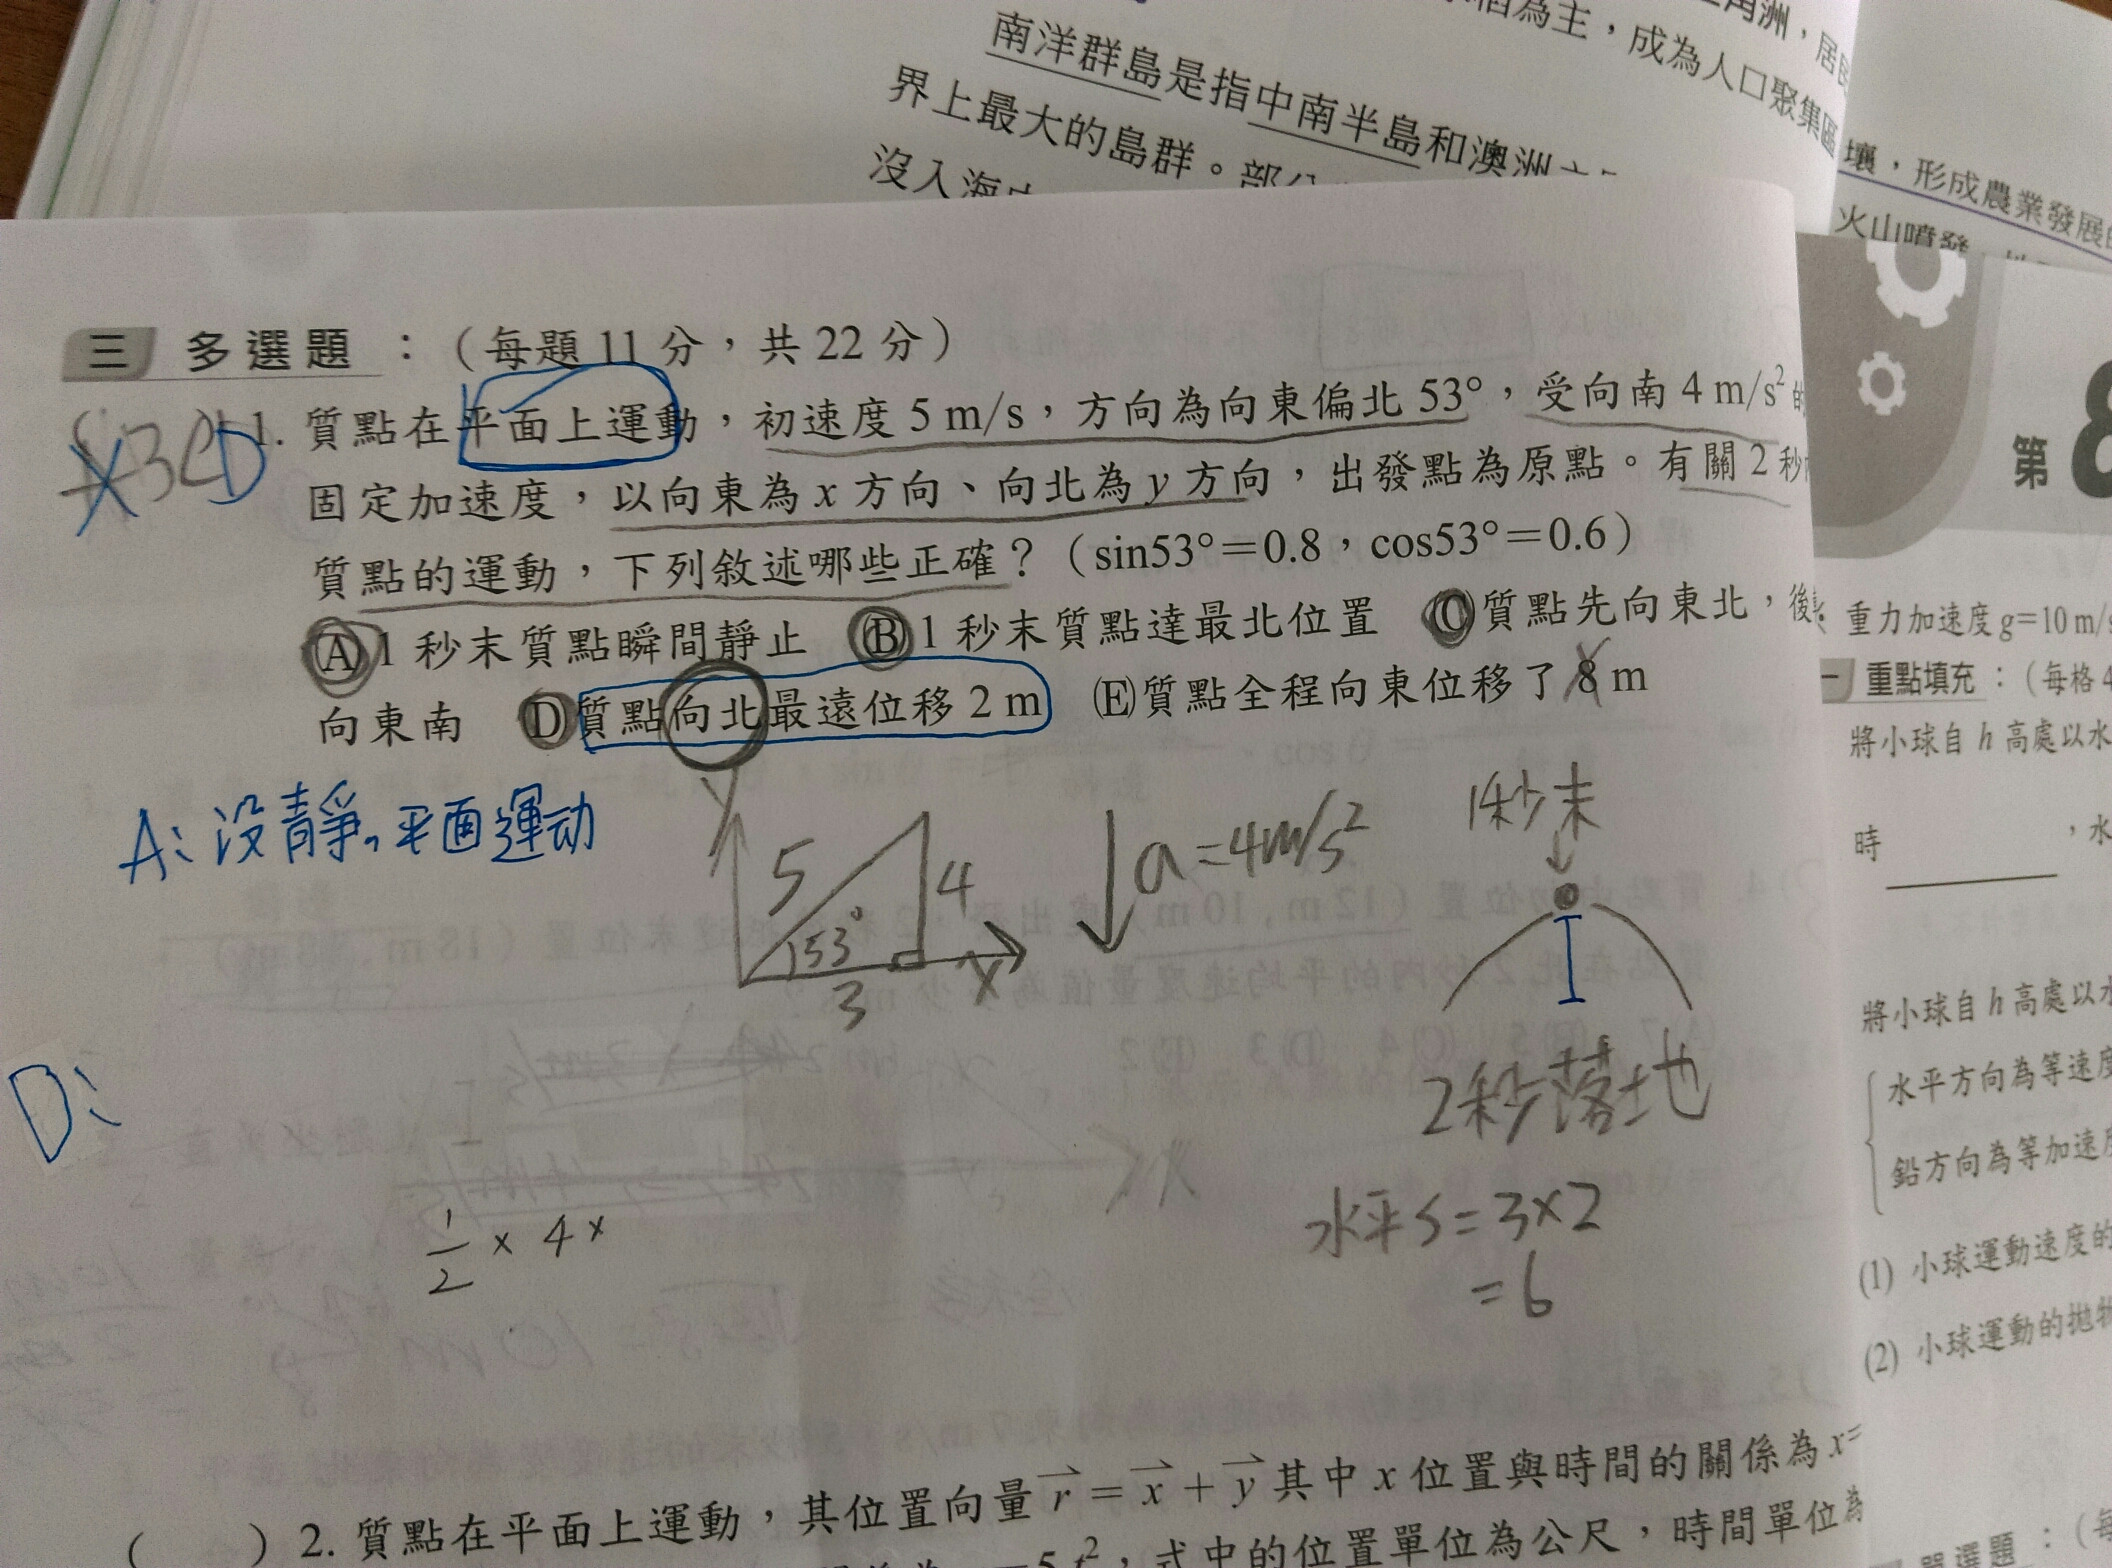 南洋群島是指中南半島和澳洲
界上最大的島群。部分
沒入海中
為主，成為人口聚集區
角洲，居
壤，形成農業發展
火山噴發
三 多選題：（每題 11 分，共 22 分）
BCD
1. 質點在平面上運動，初速度 5 m/s，方向為向東偏北 53°，受向南 4 m/s² 的
固定加速度，以向東為 x 方向、向北為 y 方向，出發點為原點。有關 2 秒內
質點的運動，下列敘述哪些正確？（sin53°＝0.8，cos53°＝0.6）
(A) 1 秒末質點瞬間靜止 (B) 1 秒末質點達最北位置 (C) 質點先向東北，後
向東南 (D) 質點向北最遠位移 2 m (E) 質點全程向東位移了 8 m
A: 沒靜。平面運动
y 5 4 53° 3 x
a = 4m/s²
1秒末
2秒落地
水平S = 3×2
= 6
D:
1/2 × 4 ×
( ) 2. 質點在平面上運動，其位置向量 r = x + y 其中 x 位置與時間的關係為 x=
5 t²，式中的位置單位為公尺，時間單位為
第 8
重力加速度 g=10 m/s
一 重點填充：（每格 4
將小球自 h 高處以水
時 ，水
將小球自 h 高處以水
水平方向為等速度
鉛方向為等加速度
(1) 小球運動速度的
(2) 小球運動的拋物
單選題：（每